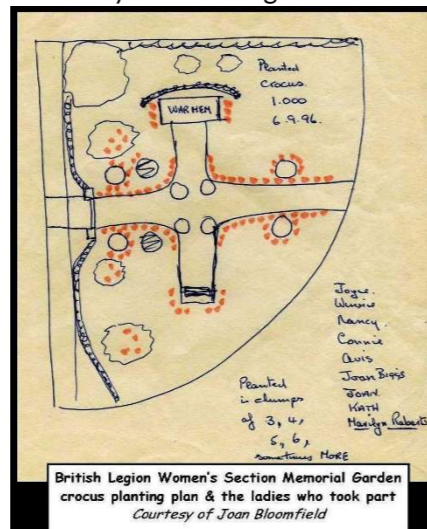 Planted
Crocus.
1.000
6.9.96.
WAR MEM
Joyce.
Winnie
Nancy.
Connie
Avis
Joan Biggs
JOAN.
KATH
Marilyn Roberts
Planted
in clumps
of 3, 4,
5, 6,
sometimes MORE
British Legion Women's Section Memorial Garden
crocus planting plan & the ladies who took part
Courtesy of Joan Bloomfield